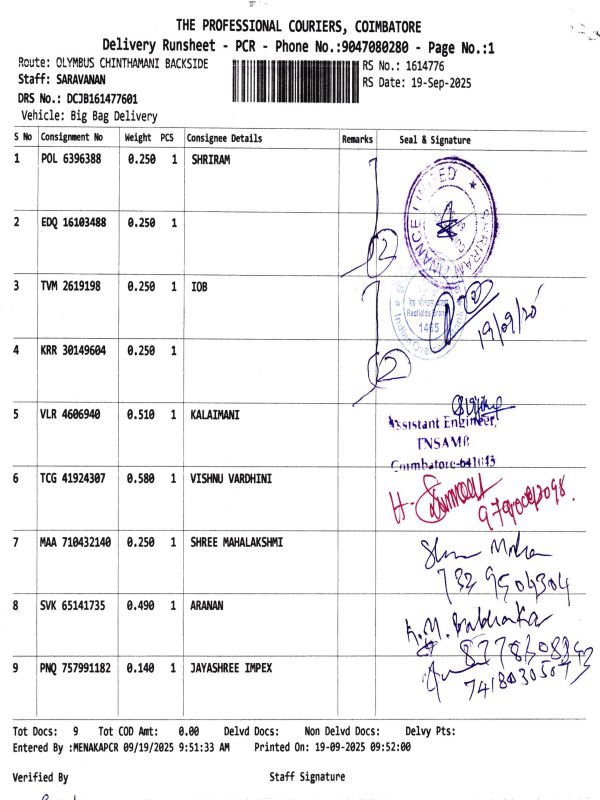 THE PROFESSIONAL COURIERS, COIMBATORE
Delivery Runsheet - PCR - Phone No.:9047080280 - Page No.:1
Route: OLYMBUS CHINTHAMANI BACKSIDE RS No.: 1614776
Staff: SARAVANAN RS Date: 19-Sep-2025
DRS No.: DCJB161477601
Vehicle: Big Bag Delivery
S No Consignment No Weight PCS Consignee Details Remarks Seal & Signature
1 POL 6396388 0.250 1 SHRIRAM
SHRIRAM FINANCE LIMITED
2 EDQ 16103488 0.250 1
2
3 TVM 2619198 0.250 1 IOB
1465
19/09/25
4 KRR 30149604 0.250 1
2
5 VLR 4606940 0.510 1 KALAIMANI
Assistant Engineer,
TNSAMB
Coimbatore-641043
6 TCG 41924307 0.580 1 VISHNU VARDHINI
7 MAA 710432140 0.250 1 SHREE MAHALAKSHMI
8 SVK 65141735 0.490 1 ARANAN
9 PNQ 757991182 0.140 1 JAYASHREE IMPEX
7418030507
Tot Docs: 9 Tot COD Amt: 0.00 Delvd Docs: Non Delvd Docs: Delvy Pts:
Entered By :MENAKAPCR 09/19/2025 9:51:33 AM Printed On: 19-09-2025 09:52:00
Verified By Staff Signature